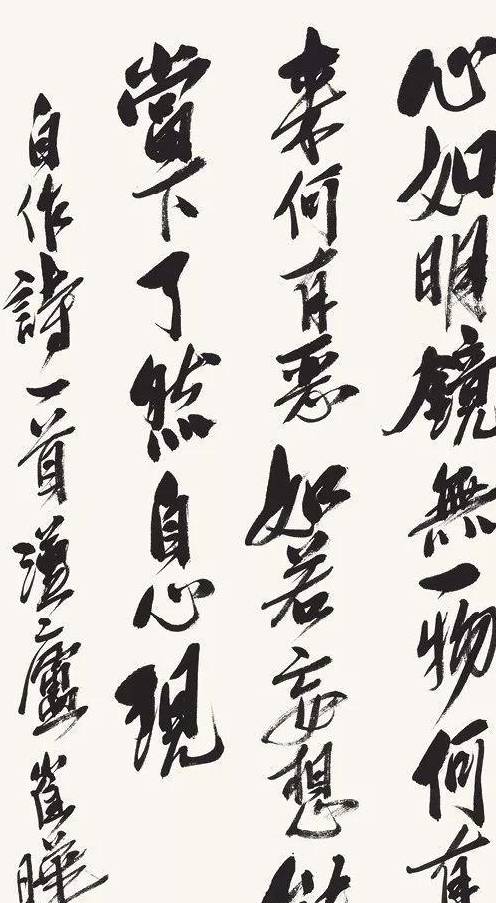 心如明鏡無一物何有
来何有惡如若妄想
當下了然自心現
自作詩一首 崔暐